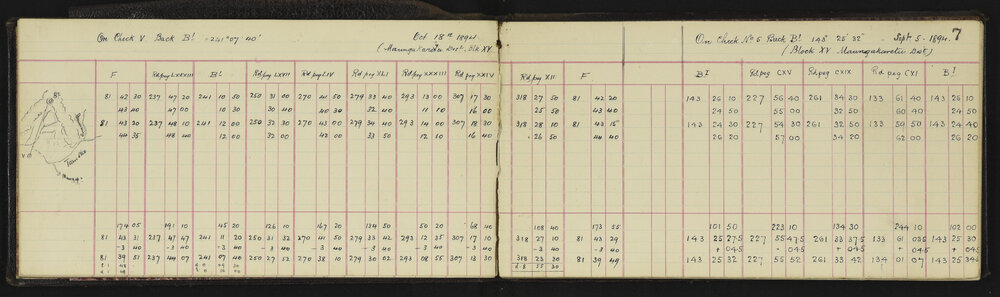 On Check V Back B! = 241° 07' 40" Oct 18th 1894
(Maungakaretu Dist. Blk XV
F Rd. peg LXXIII B! Rd. peg LXVII Rd. peg LIV Rd. peg XLI Rd. peg XXXIII Rd. peg XXIV
81 42 30 237 47 20 241 10 50 250 31 00 270 41 50 279 33 40 293 13 00 307 17 30
43 40 47 00 10 30 30 40 40 30 32 40 11 10 16 00
81 43 20 237 48 10 241 12 00 250 32 30 270 43 00 279 34 40 293 14 00 307 18 30
44 35 48 40 12 00 32 00 42 00 33 50 12 10 16 40
B!
V
174 05 191 10 45 20 126 10 167 20 134 50 50 20 68 40
81 43 31 237 47 47 241 11 20 250 31 32 270 41 50 279 33 42 293 12 35 307 17 10
-3 40 -3 40 -3 40 -3 40 -3 40 -3 40 -3 40 -3 40
81 39 51 237 44 07 241 07 40 250 27 52 270 38 10 279 30 02 293 08 55 307 13 30
7
On Check No 5 Back B! 143° 25' 32" Sept. 5 - 1894.
(Block XV Maungakaretu Dist)
Rd peg XII F B! Rd. peg CXV Rd. peg CXIX Rd. peg CXI B!
318 27 50 81 42 20 143 26 10 227 56 40 261 34 30 133 61 40 143 25 10
25 50 43 40 24 50 55 00 32 50 60 40 24 50
318 28 10 81 43 15 143 24 30 227 54 30 261 32 50 133 59 50 143 24 40
26 50 44 40 26 20 57 00 34 20 62 00 26 20
108 40 173 55 101 50 223 10 134 30 244 10 102 00
318 27 10 81 43 29 143 25 27.5 227 55 47.5 261 33 37.5 133 61 03.5 143 25 30
-3 40 -3 40 + 04.5 + 04.5 + 04.5 + 04.5 + 04.5
318 23 30 81 39 49 143 25 32 227 55 52 261 33 42 134 01 07 143 25 34.5